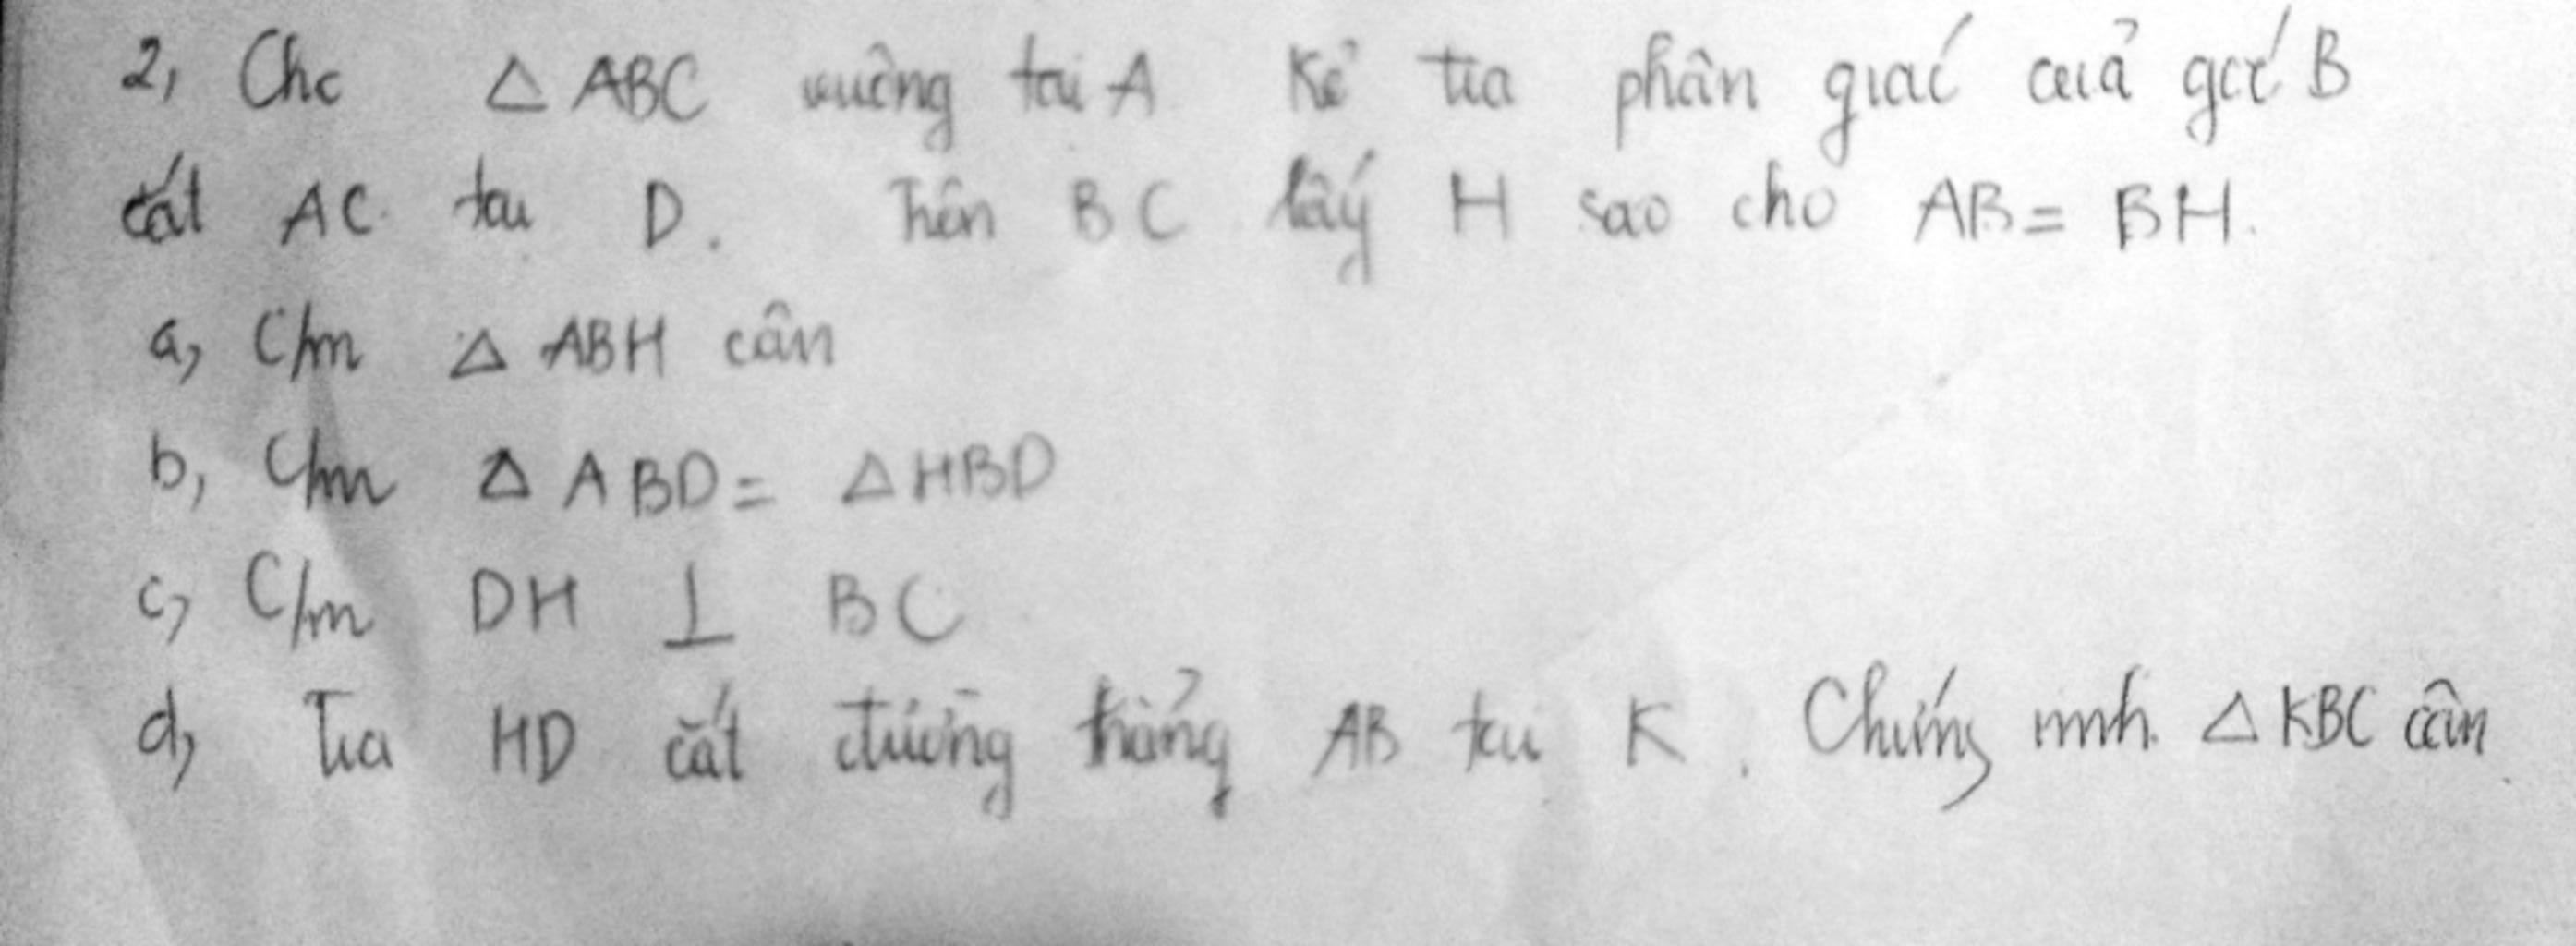 2, Cho △ ABC vuông tại A Kẻ tia phân giác cuả góc B
cắt AC tại D. Trên BC lấy H sao cho AB = BH.
a, C/m △ ABH cân
b, C/m △ ABD = △ HBD
c, C/m DH ⊥ BC
d, Tia HD cắt đường thẳng AB tại K. Chứng minh △ KBC cân